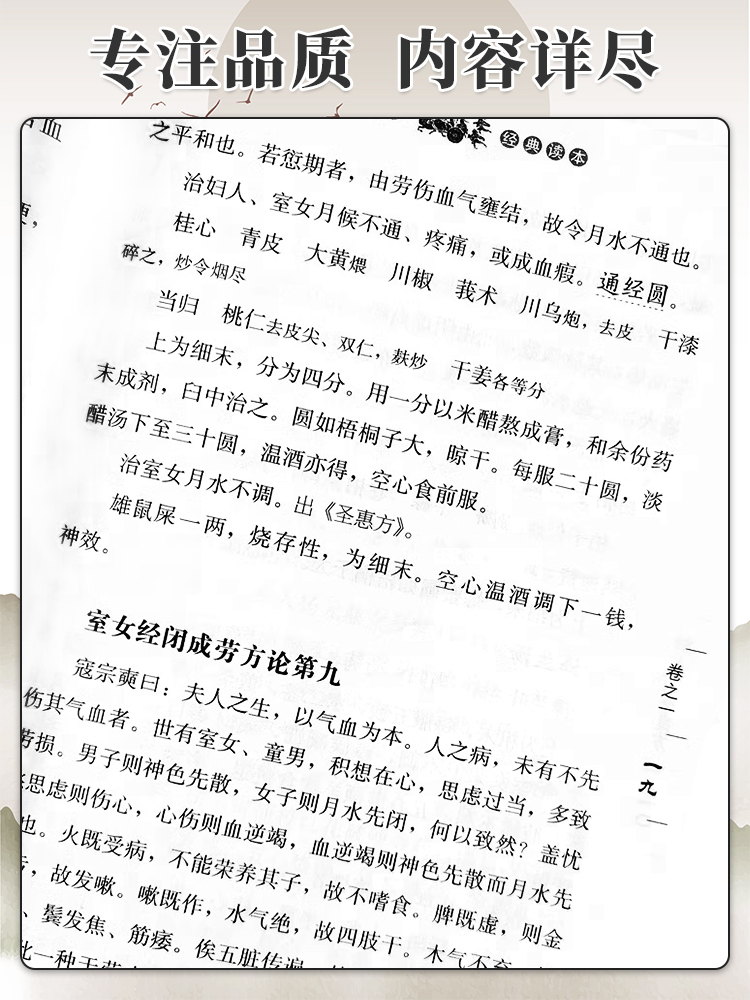 专注品质 内容详尽
血
经典读本
之平和也。若愆期者，由劳伤血气壅结，故令月水不通也。
治妇人、室女月候不通、疼痛，或成血瘕。通经圆。
桂心 青皮 大黄煨 川椒 莪术 川乌炮，去皮 干漆
碎之，炒令烟尽
当归 桃仁去皮尖、双仁，麸炒 干姜各等分
上为细末，分为四分。用一分以米醋熬成膏，和余份药
末成剂，臼中治之。圆如梧桐子大，晾干。每服二十圆，淡
醋汤下至三十圆，温酒亦得，空心食前服。
治室女月水不调。出《圣惠方》。
雄鼠屎一两，烧存性，为细末。空心温酒调下一钱，
神效。
室女经闭成劳方论第九
寇宗奭曰：夫人之生，以气血为本。人之病，未有不先
伤其气血者。世有室女、童男，积想在心，思虑过当，多致
劳损。男子则神色先散，女子则月水先闭，何以致然？盖忧
思虑则伤心，心伤则血逆竭，血逆竭则神色先散而月水先
也。火既受病，不能荣养其子，故不嗜食。脾既虚，则金
，故发嗽。嗽既作，水气绝，故四肢干。木气不充
、鬓发焦、筋痿。俟五脏传遍
一种于劳
卷之一
一九